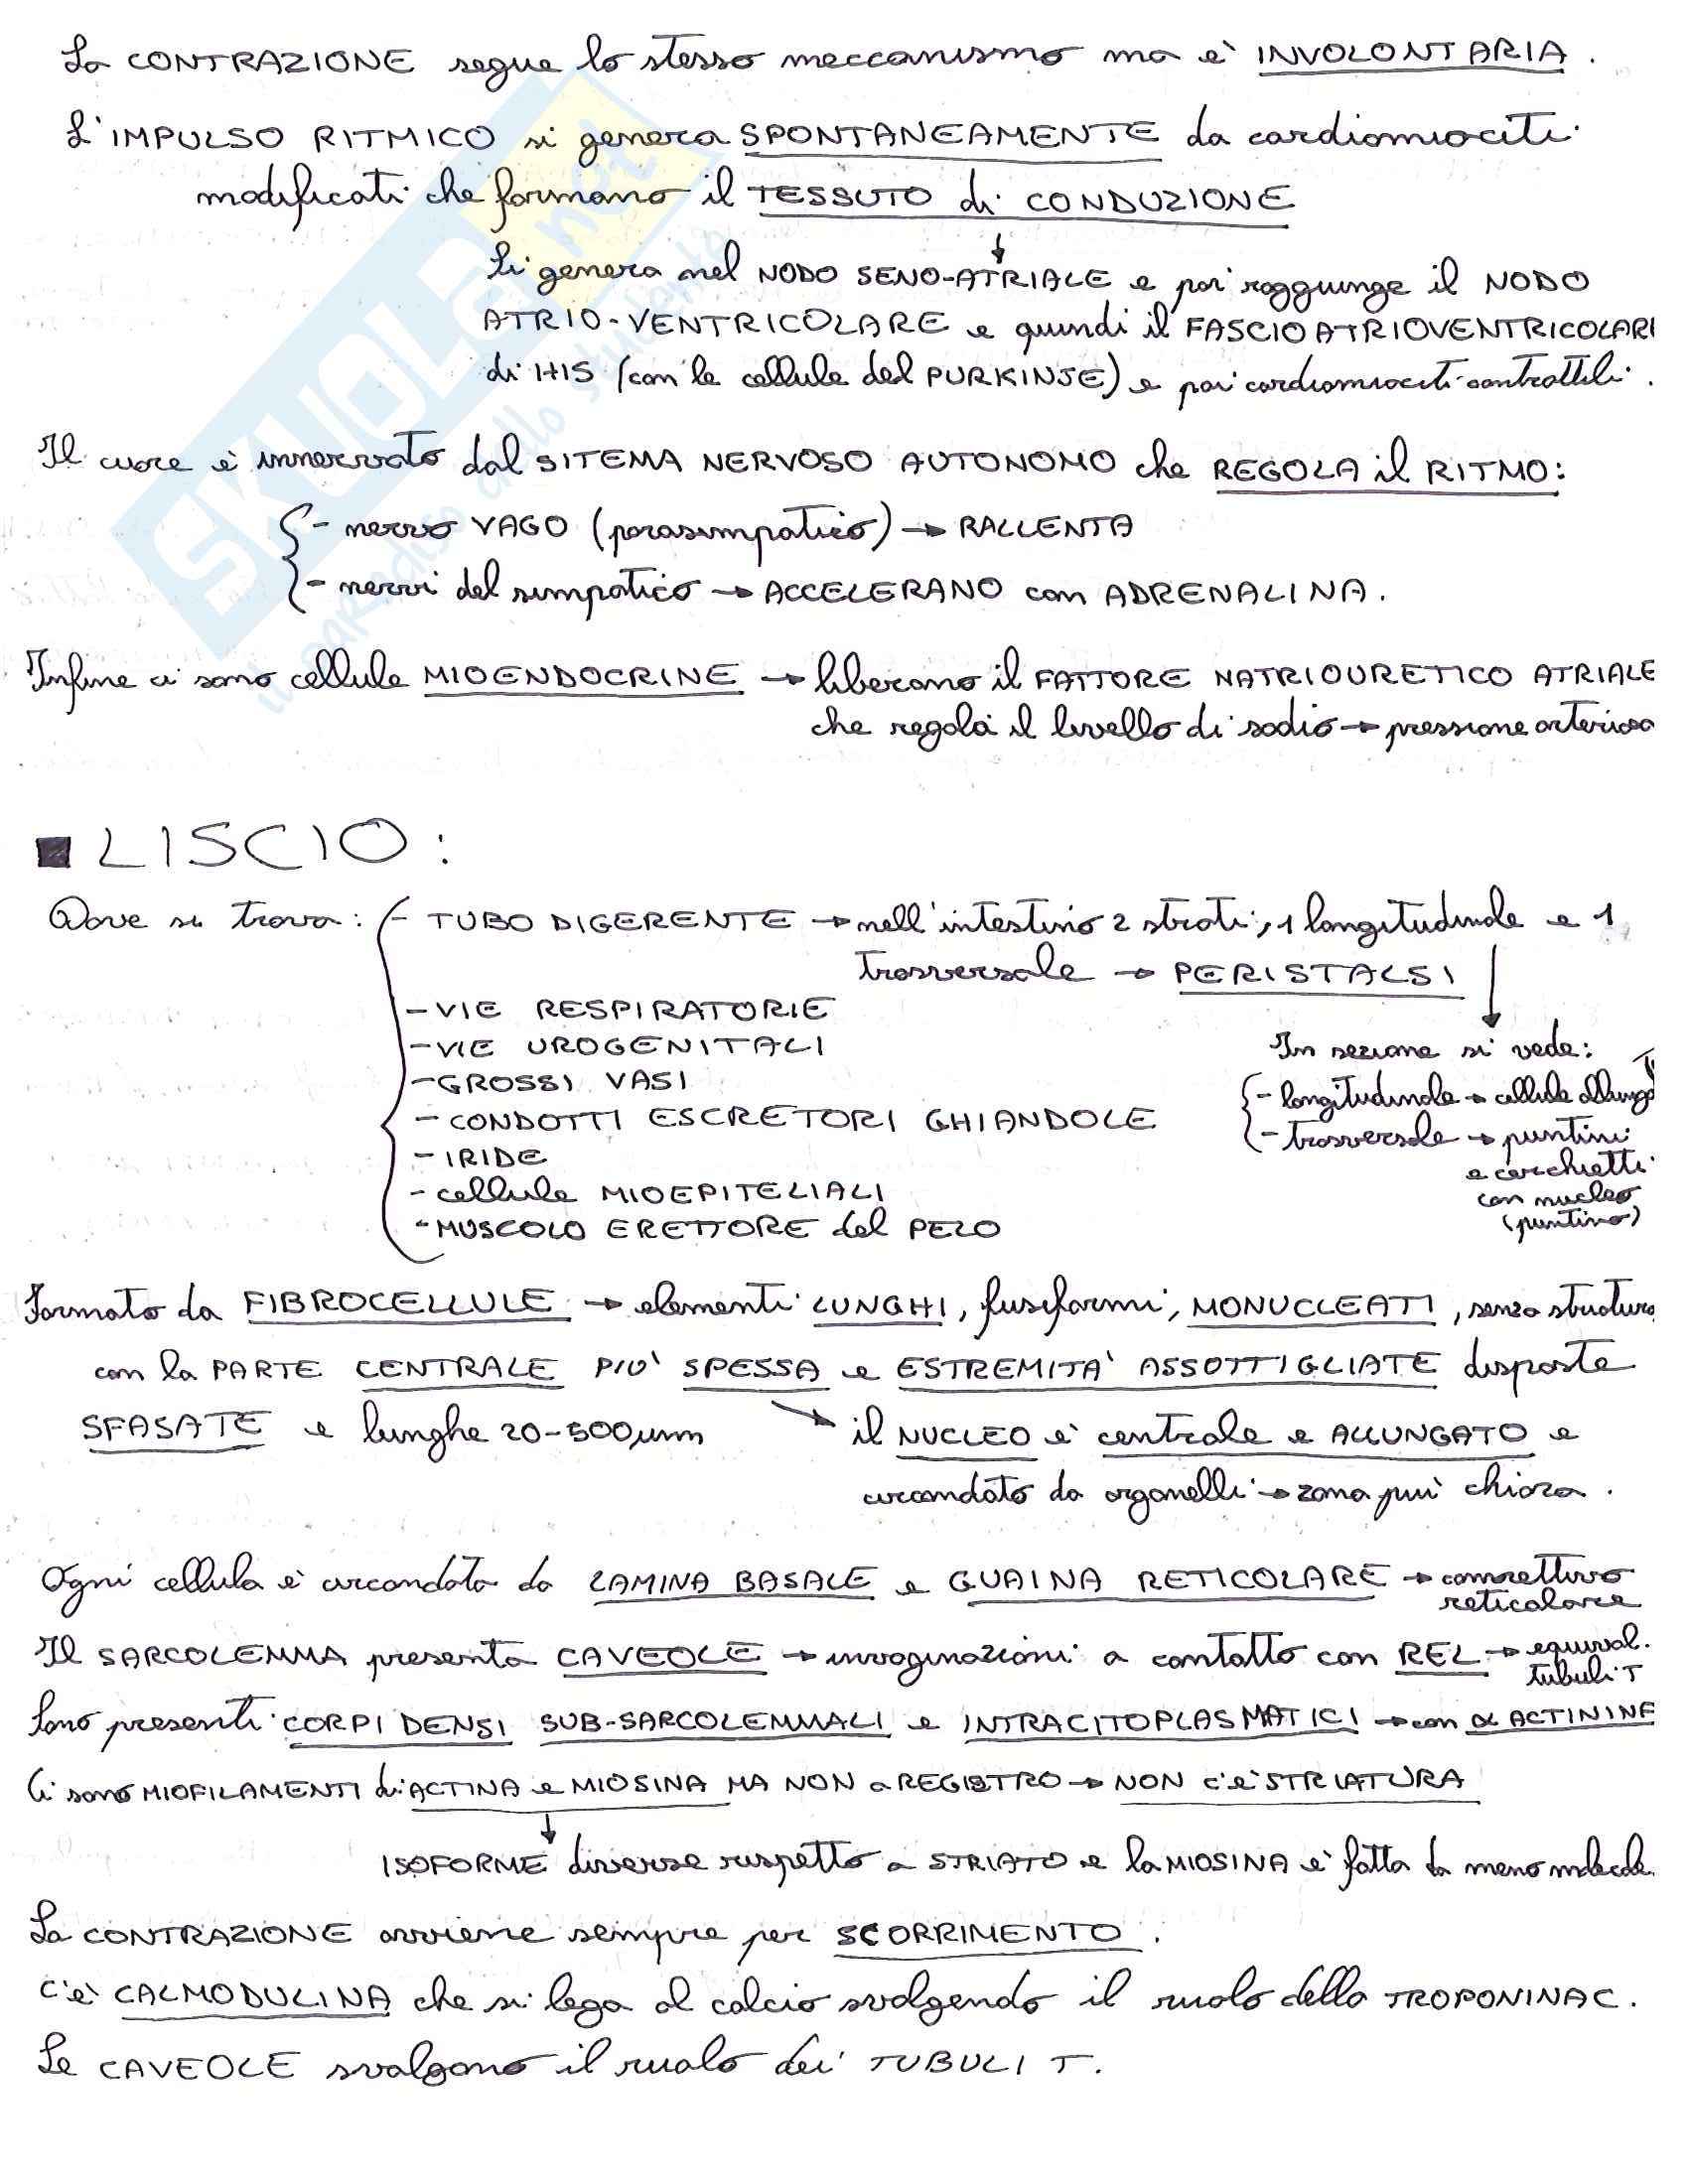 La CONTRAZIONE segue lo stesso meccanismo ma è INVOLONTARIA.
L'IMPULSO RITMICO si genera SPONTANEAMENTE da cardiomiociti
modificati che formano il TESSUTO di CONDUZIONE
↓
Si genera nel NODO SENO-ATRIALE e poi raggiunge il NODO
ATRIO-VENTRICOLARE e quindi il FASCIO ATRIOVENTRICOLARI
di HIS (con le cellule del PURKINJE) e poi cardiomiociti contrattili.
Il cuore è innervato dal SITEMA NERVOSO AUTONOMO che REGOLA il RITMO:
- nervo VAGO (parasimpatico) → RALLENTA
- nervi del simpatico → ACCELERANO con ADRENALINA.
Infine ci sono cellule MIOENDOCRINE → liberano il FATTORE NATRIOURETICO ATRIALE
che regola il livello di sodio → pressione arteriosa
■ LISCIO:
Dove si trova: - TUBO DIGERENTE → nell'intestino 2 strati, 1 longitudinale e 1
trasversale → PERISTALSI
- VIE RESPIRATORIE
- VIE UROGENITALI
- GROSSI VASI
- CONDOTTI ESCRETORI GHIANDOLE
- IRIDE
- cellule MIOEPITELIALI
- MUSCOLO ERETTORE del PELO
In sezione si vede:
- longitudinale → cellule allung
- trasversale → puntini
e cerchietti
con nucleo
(puntino)
Formato da FIBROCELLULE → elementi LUNGHI, fusiformi, MONUCLEATI, senza striatura
con la PARTE CENTRALE PIU' SPESSA e ESTREMITA' ASSOTTIGLIATE disposte
SFASATE e lunghe 20-500 μm
il NUCLEO è centrale e ALLUNGATO e
circondato da organelli → zona più chiara.
Ogni cellula è circondata da LAMINA BASALE e GUAINA RETICOLARE → connettivo
reticolare
Il SARCOLEMMA presenta CAVEOLE → invaginazioni a contatto con REL → equival.
tubuli T
Sono presenti CORPI DENSI SUB-SARCOLEMMALI e INTRACITOPLASMATICI → con α ACTININE
Ci sono MIOFILAMENTI di ACTINA e MIOSINA MA NON a REGISTRO → NON c'è STRIATURA
↓
ISOFORME diverse rispetto a STRIATO e la MIOSINA è fatta da meno molecole
La CONTRAZIONE avviene sempre per SCORRIMENTO.
C'è CALMODULINA che si lega al calcio svolgendo il ruolo della TROPONINA C.
Le CAVEOLE svolgono il ruolo dei TUBULI T.
SKUOLA.net
il paradiso dello studente